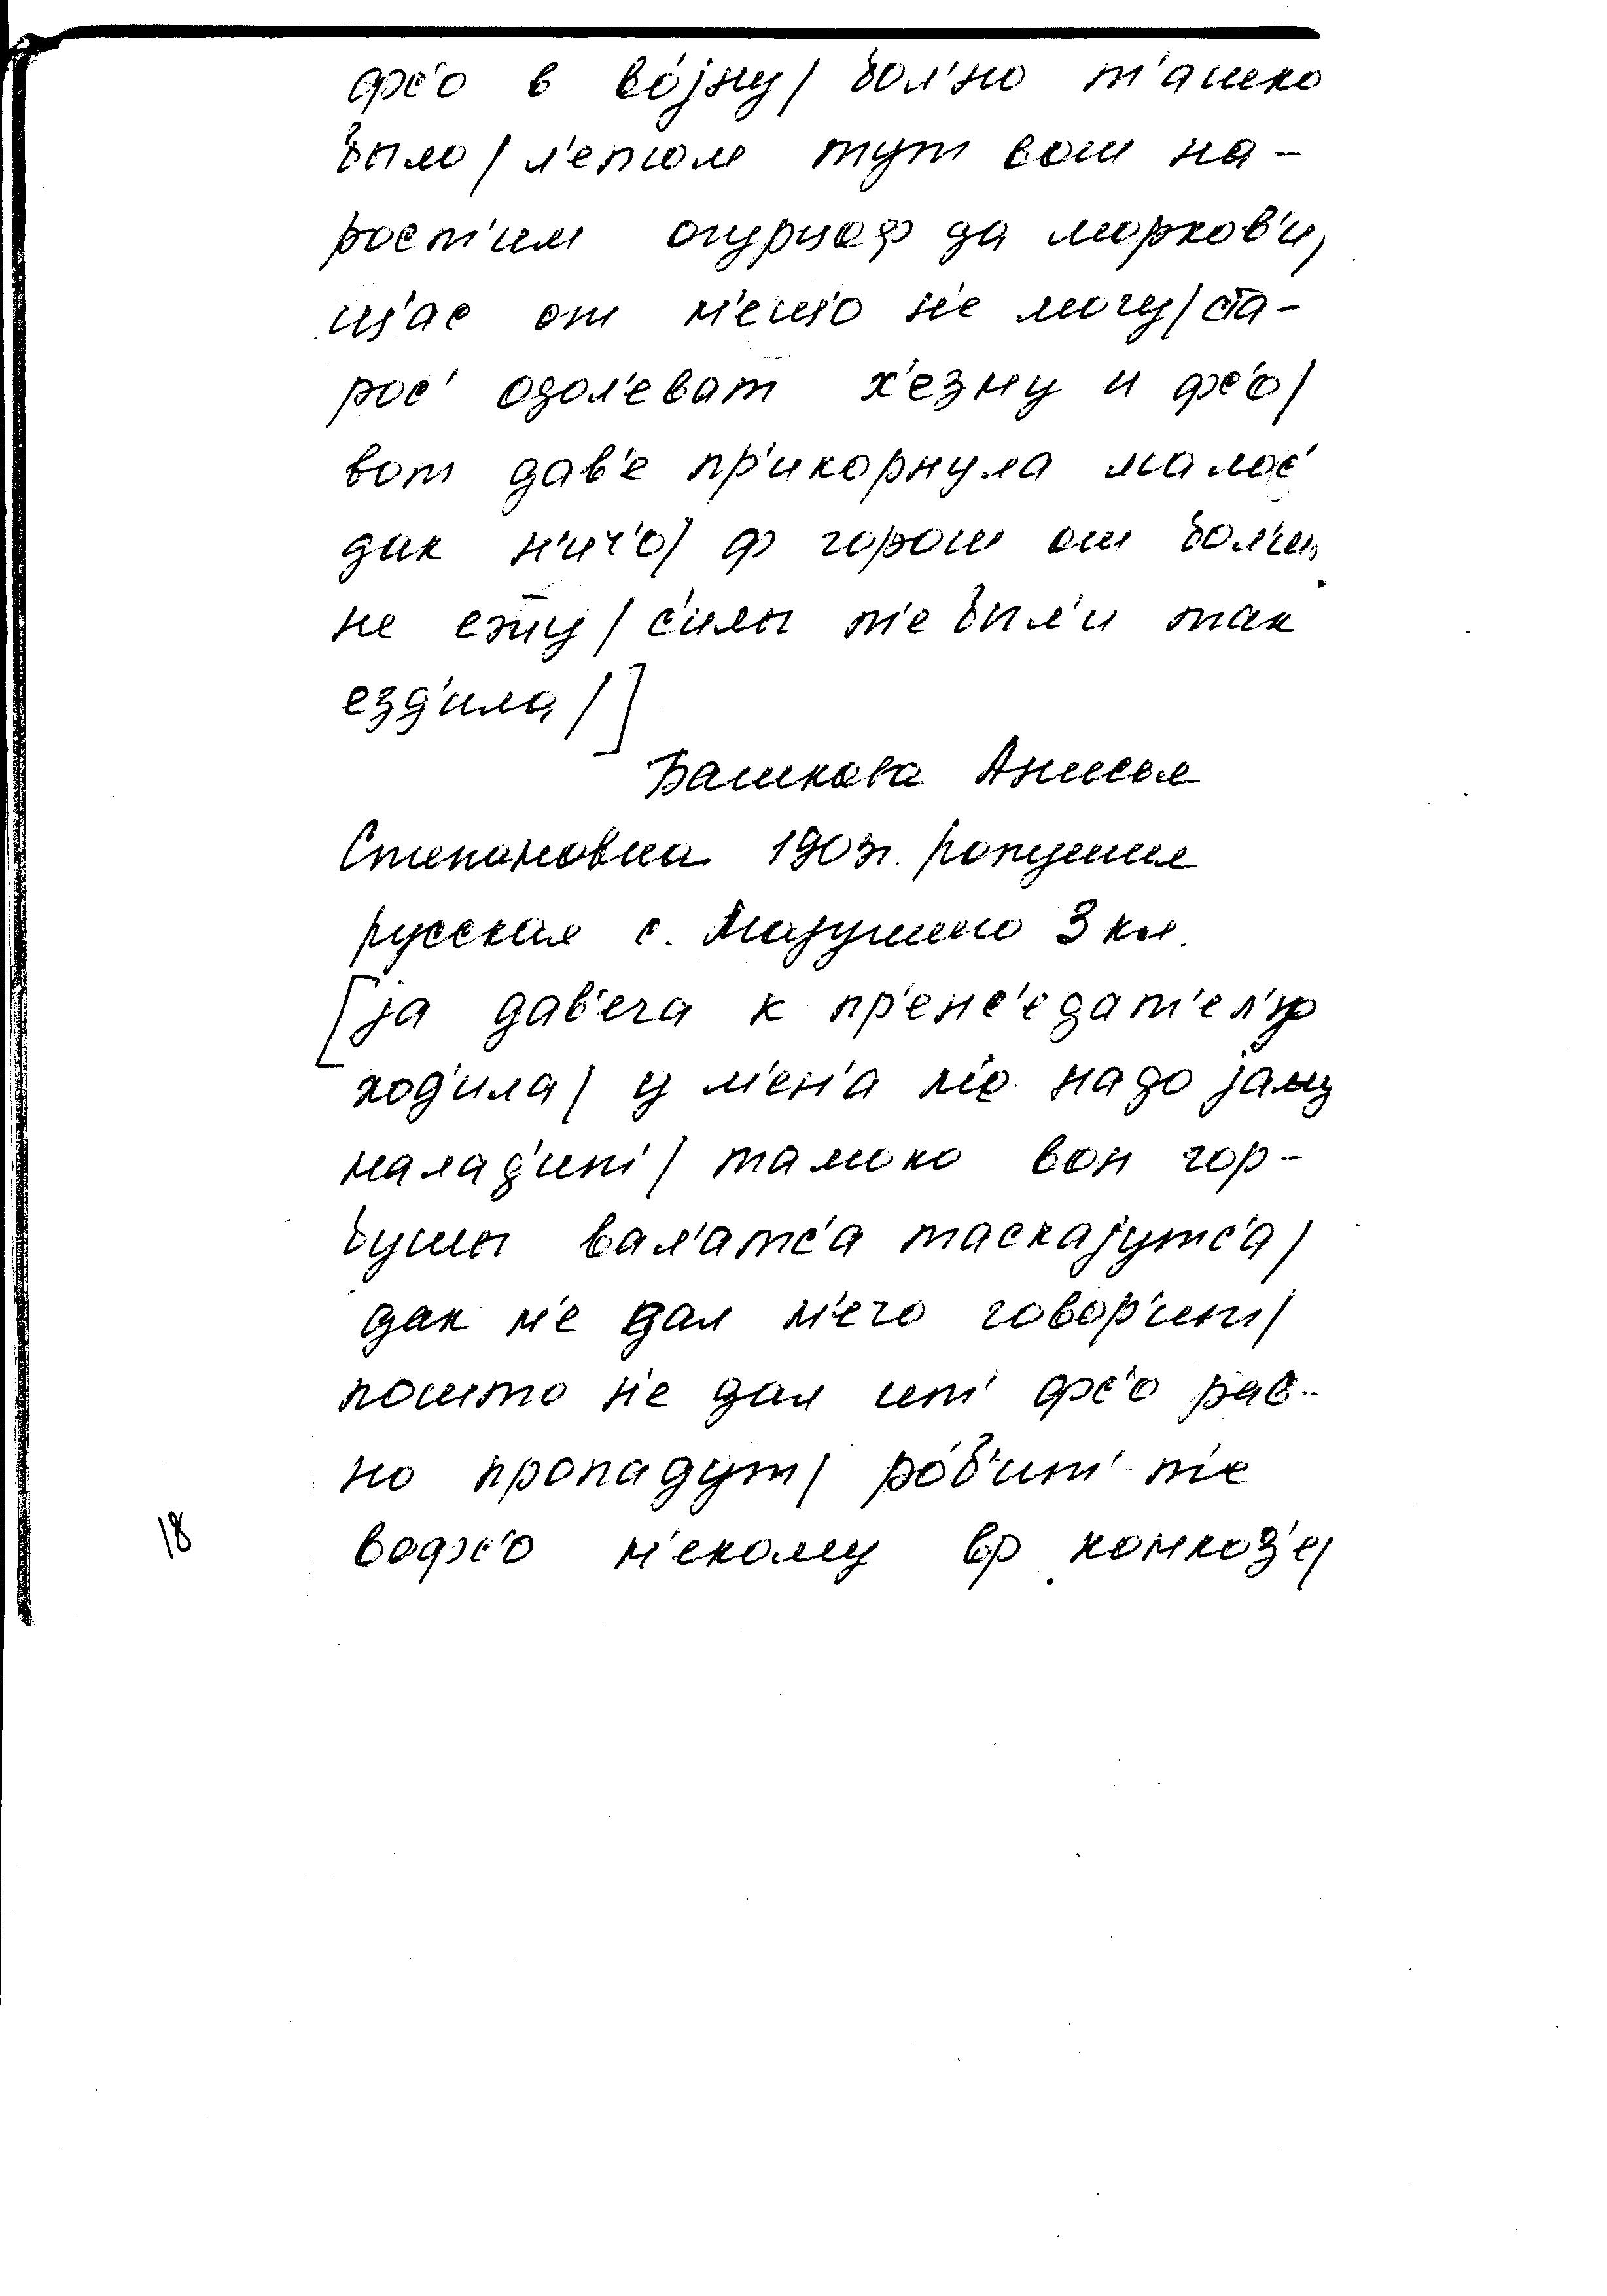 фс'о в во́jну/ бол'но т'ашко
было/ л'етом тут вот на-
рост'им огурцоф да морков'и,
щ'ас от н'ещ'о н'е могу/ ста-
рос' одол'еват и фс'о/
вот дав'е пр'икорнула малос'
дак н'ич'о/ ф горот от бол'ш
не еж̅у/ с'илы т'е был'и так
езд'ила/]
Башкова Анисья
Степановна 1903г. рождения
русская с. Мазунино 3 кл.
[jа дав'еча к пр'енс'едат'ел'у
ход'ила/ у м'ен'а надо jаму
налад'ит'/ тамоко вон гор-
бушы вал'атс'а таскаjутс'а/
дак н'е дал н'его говор'ит/
пошто н'е дал ит' фс'о рав-
но пропадут/ ро́б'ит' т'е
вофс'о н'екому в
18